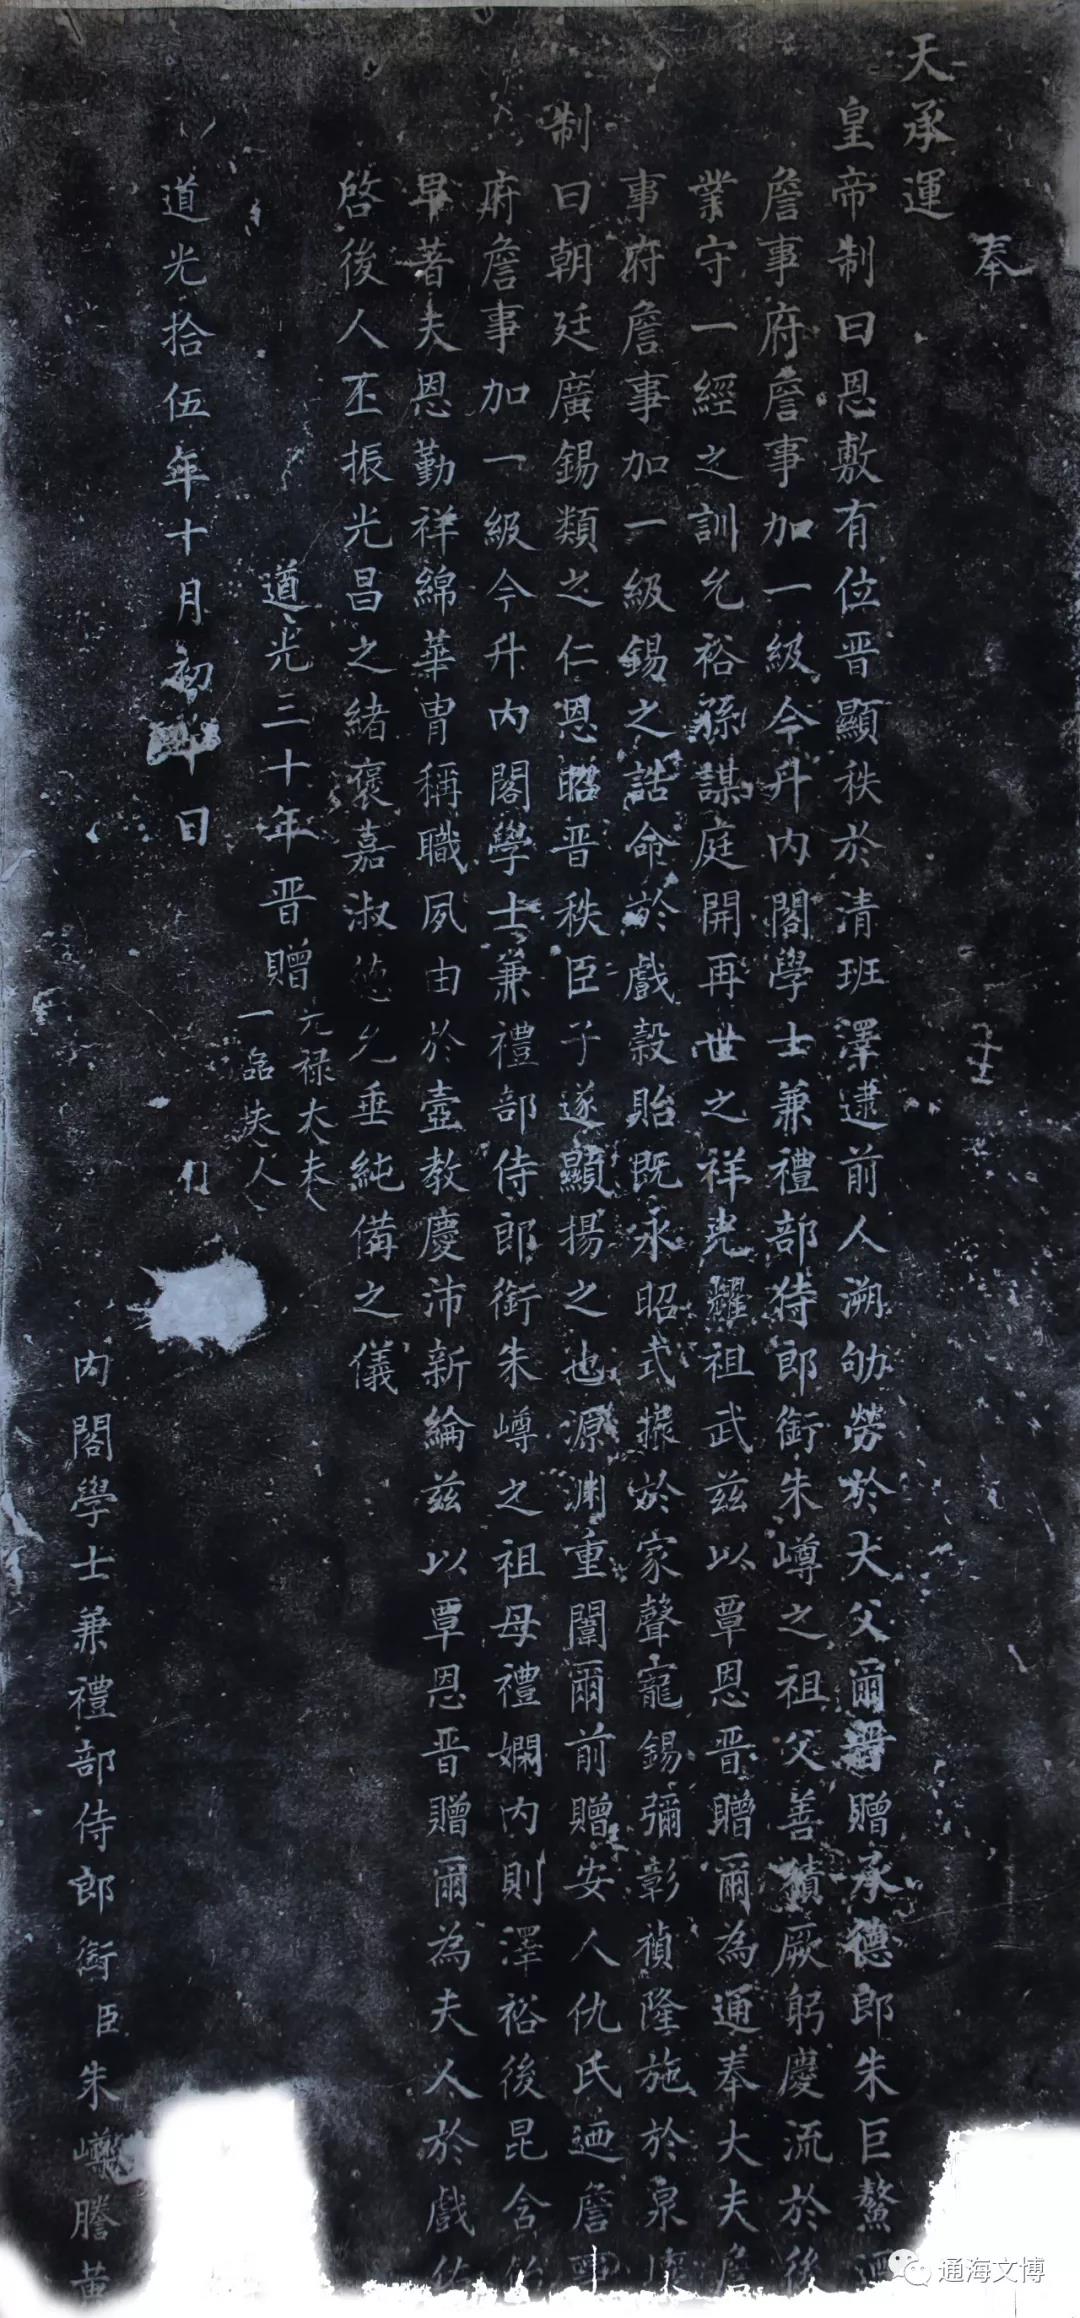 奉
天承運
皇帝制曰恩敷有位晋顯秩於清班澤逮前人溯劬勞於大父爾晋贈承德郎朱巨鰲迺
詹事府詹事加一級今升内閣學士兼禮部侍郎銜朱嶟之祖父善積厥躬慶流於後
業守一經之訓允裕孫謀庭開再世之祥光耀祖武兹以覃恩晋贈爾為通奉大夫詹
事府詹事加一級錫之誥命於戲穀貽既永昭式榖於家聲寵錫彌彰禎隆施於泉壤
制曰朝廷廣錫類之仁恩昭晋秩臣子遂顯揚之也源渊重闈爾前贈安人仇氏迺詹事
府詹事加一級今升内閣學士兼禮部侍郎銜朱嶟之祖母禮嫻内則澤裕後昆含飴
早著夫恩勤祥綿華胄稱職夙由於壼教慶沛新綸兹以覃恩晋贈爾為夫人於戲佑
啓後人丕振光昌之緒褒嘉淑德允垂純備之儀
道光三十年晋贈
光禄大夫
一品夫人
道光拾伍年十月初十日
内閣學士兼禮部侍郎銜臣朱嶟謄黄
通海文博